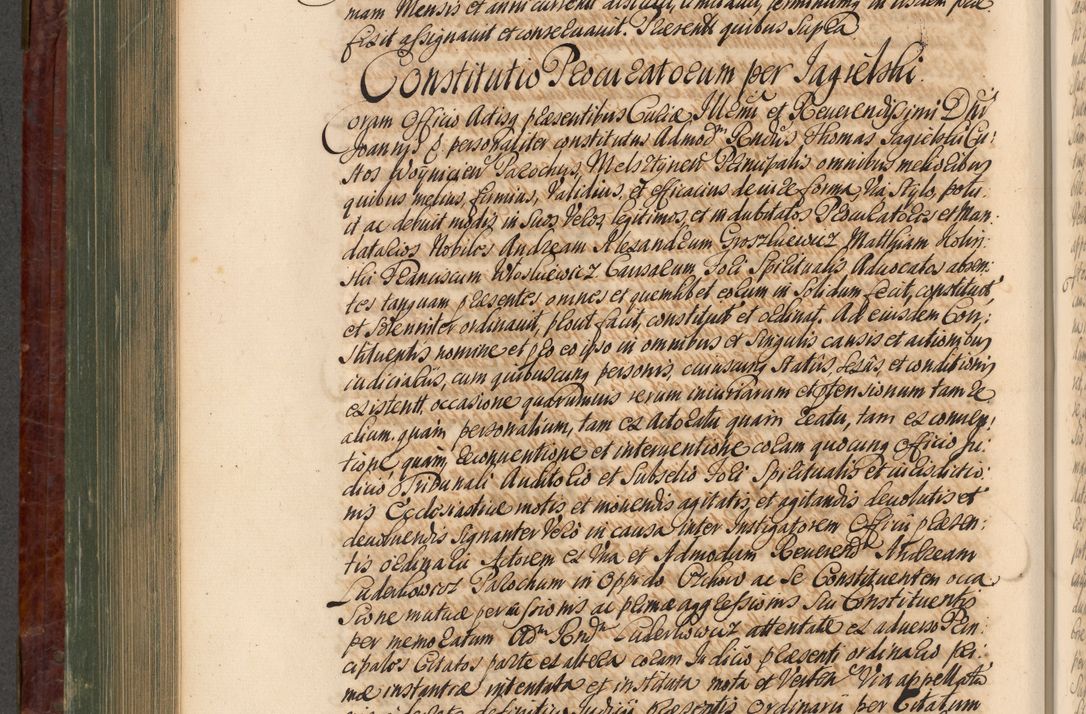 mam Mensis et anni current
fixit assignavit et conservavit. Praesent quibus supra
Constitutio Procuratorum per Jagielski
Coram Officio Actisq praesentibus Curiae Illmi et Reverendissimi Dni
Joannis P personaliter constitutus Admod Rndus Thomas Jagielski Cu:
stos Woynicien Parochus, Melsztynen Principalis omnibus melioribus
quibus melius, firmius, validius, et efficacius de iure forma, via stylo, potu:
it ac debuit modis in suos veros legitimos, et indubitatos Procuratores et Man:
datarios Nobiles Andream Alexandrum Groszkiewicz Matthiam Kobir:
ski Franciscum Wloskiewicz Causarum Fori Spiritualis Advocatos absen:
tes tanquam praesentes omnes et quemlibet eorum in solidum fecit, constituit,
et solenniter ordinavit, prout facit, constituit et ordinat. Ad eiusdem Con:
stituentis nomine et pro eo ipso in omnibus et singulis causis et actionibus
iudicialiis, cum quibuscunq personis, cuiuscunq status, sexus, et conditionis
existent, occasione quarumvis rerum iniuriarum et offensionum tam re
alium quam personalium, tam ex Actoratu quam Reatu, tam ex conven:
tione, quam reconventione et interventione coram quocunq officio ju:
dicio Tribunali Auditorio et Subselio Fori Spiritualis et iurisdictio:
nis Ecclesiasticae motis et movendis agitatis, et agitandis devolutis et
devolvendis signanter vero in causa inter Instigatorem Officii praesen:
tis ordinarii Actorem ex una et Admodum Reverend Andream
Laderkowicz Parochum in Oppido Czchow ac se Constituentem occa
sione mutuae percussionis ac primae aggressionis sui Constituentis
per memoratum Adm Rnd Laderkowicz attentatae ex adverso Prin:
cipalos Citatos parte ex altera coram Judicio praesenti ordinario pri:
mae instantiae intentata et instituta mota et vertente Via appellata
definitiva Judicii Praesentis Ordinarii per Citatum